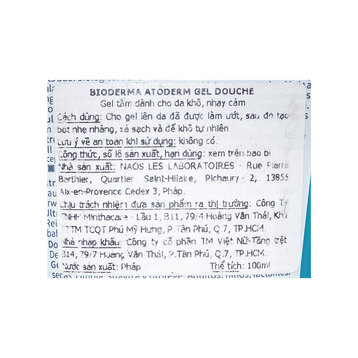 BIODERMA ATODERM GEL DOUCHE
Gel tắm dành cho da khô, nhạy cảm
Cách dùng: Cho gel lên da đã được làm ướt, sau đó tạo
bọt nhẹ nhàng, xả sạch và để khô tự nhiên
Lưu ý về an toàn khi sử dụng: không có.
Công thức, số lô sản xuất, hạn dùng: xem trên bao bì
Nhà sản xuất: NAOS LES LABORATOIRES - Rue Pierre
Berthier, Quartier Saint-Hilaire, Pichaury 2, 13855
Aix-en-Provence Cedex 3, Pháp.
Chịu trách nhiệm đưa sản phẩm ra thị trường: Công Ty
TNHH Minthacare - Lầu 1, B11, 79/4 Hoàng Văn Thái, Khu
TTM TCQT Phú Mỹ Hưng, P.Tân Phú, Q.7, TP.HCM.
Nhà nhập khẩu: Công ty cổ phần TM Việt Nữ-Tầng trệt
B14, 79/7 Hoàng Văn Thái, P.Tân Phú, Q.7, TP.HCM.
Nước sản xuất: Pháp Thể tích: 100ml